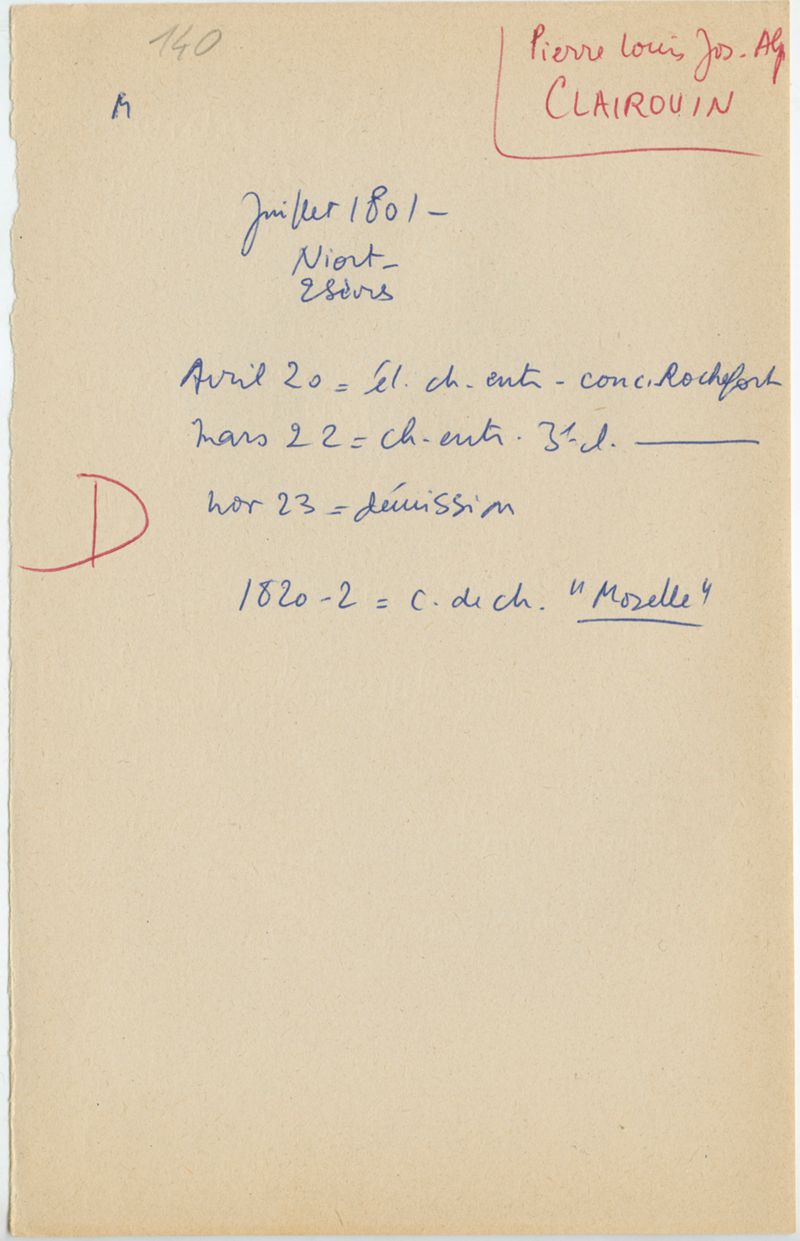 140
Pierre Louis Jos. Alp
CLAIROUIN
M
Juillet 1801 -
Niort -
2 Sèvres
Avril 20 = él. ch. entr - conc. Rochefort
Mars 22 = ch. entr. 3e cl. ———
D
Nov 23 = démission
1820 - 2 = c. de ch. "Moselle"